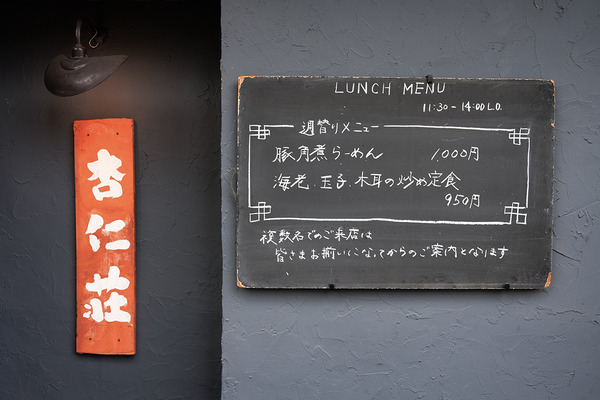 杏仁荘
LUNCH MENU
11:30-14:00 L.O.
週替りメニュー
豚角煮らーめん 1,000円
海老、玉子、木耳の炒め定食
950円
複数名でのご来店は
皆さまお揃いになってからのご案内となります